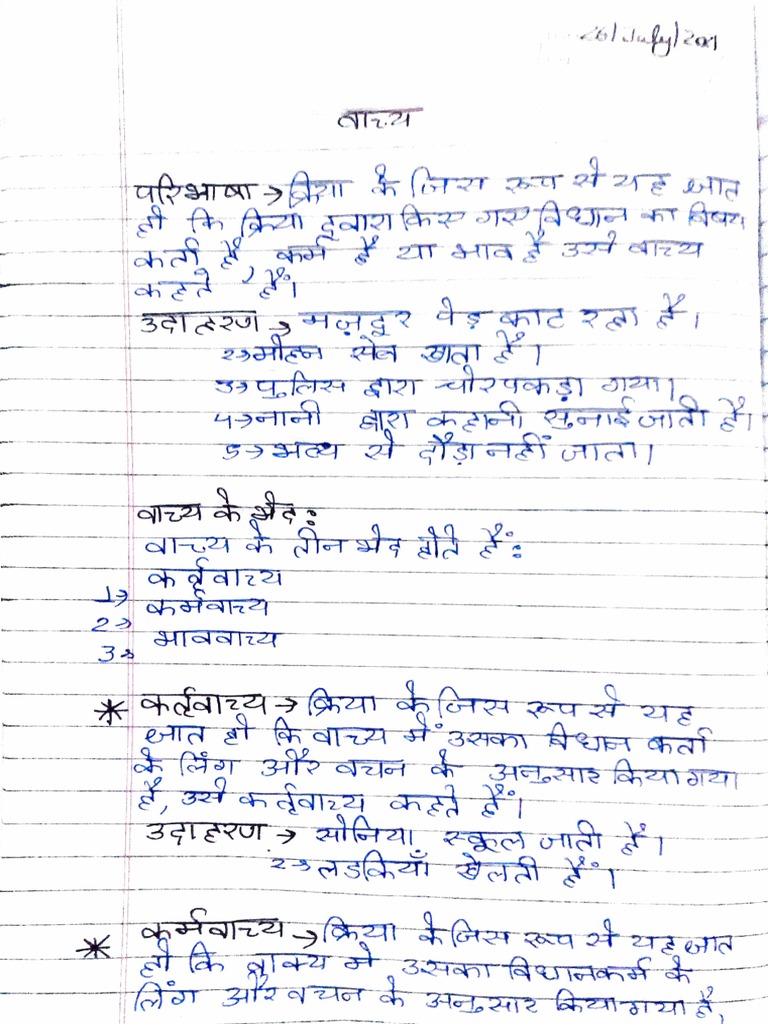 26/July/2021
वाच्य
परिभाषा → क्रिया के जिस रूप से यह ज्ञात
हो कि क्रिया द्वारा किए गए विधान का विषय
कर्ता है, कर्म है या भाव है उसे वाच्य
कहते हैं।
उदाहरण → मज़दूर पेड़ काट रहा है।
2→ मोहन सेब खाता है।
3→ पुलिस द्वारा चोर पकड़ा गया।
4→ नानी द्वारा कहानी सुनाई जाती है।
5→ भव्य से दौड़ा नहीं जाता।
वाच्य के भेद :
वाच्य के तीन भेद होते हैं :
1→ कर्तृवाच्य
2→ कर्मवाच्य
3→ भाववाच्य
* कर्तृवाच्य → क्रिया के जिस रूप से यह
ज्ञात हो कि वाच्य में उसका विधान कर्ता
के लिंग और वचन के अनुसार किया गया
है, उसे कर्तृवाच्य कहते हैं।
उदाहरण → सोनिया स्कूल जाती है।
2→ लडकियाँ खेलती हैं।
* कर्मवाच्य → क्रिया के जिस रूप से यह ज्ञात
हो कि वाक्य मे उसका विधान कर्म के
लिंग और वचन के अनुसार किया गया है,